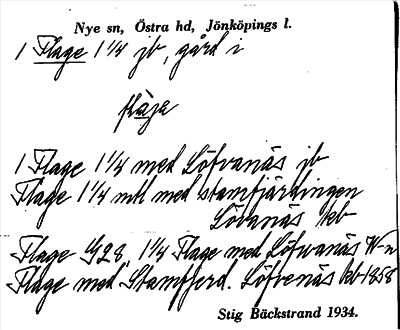 Nye sn, Östra hd, Jönköpings l.
1 Flage 1 1/4 jb, gård i
flaga
1 Flage 1 1/4 med Löfvanäs jb
Flage 1 1/4 mtl med stamfjärdingen
Lövanäs kb
Flage G28, 1 1/4 Flage med Löfwanäs W-n
Flage med Stamfjerd. Löfvenäs kb 1858
Stig Bäckstrand 1934.